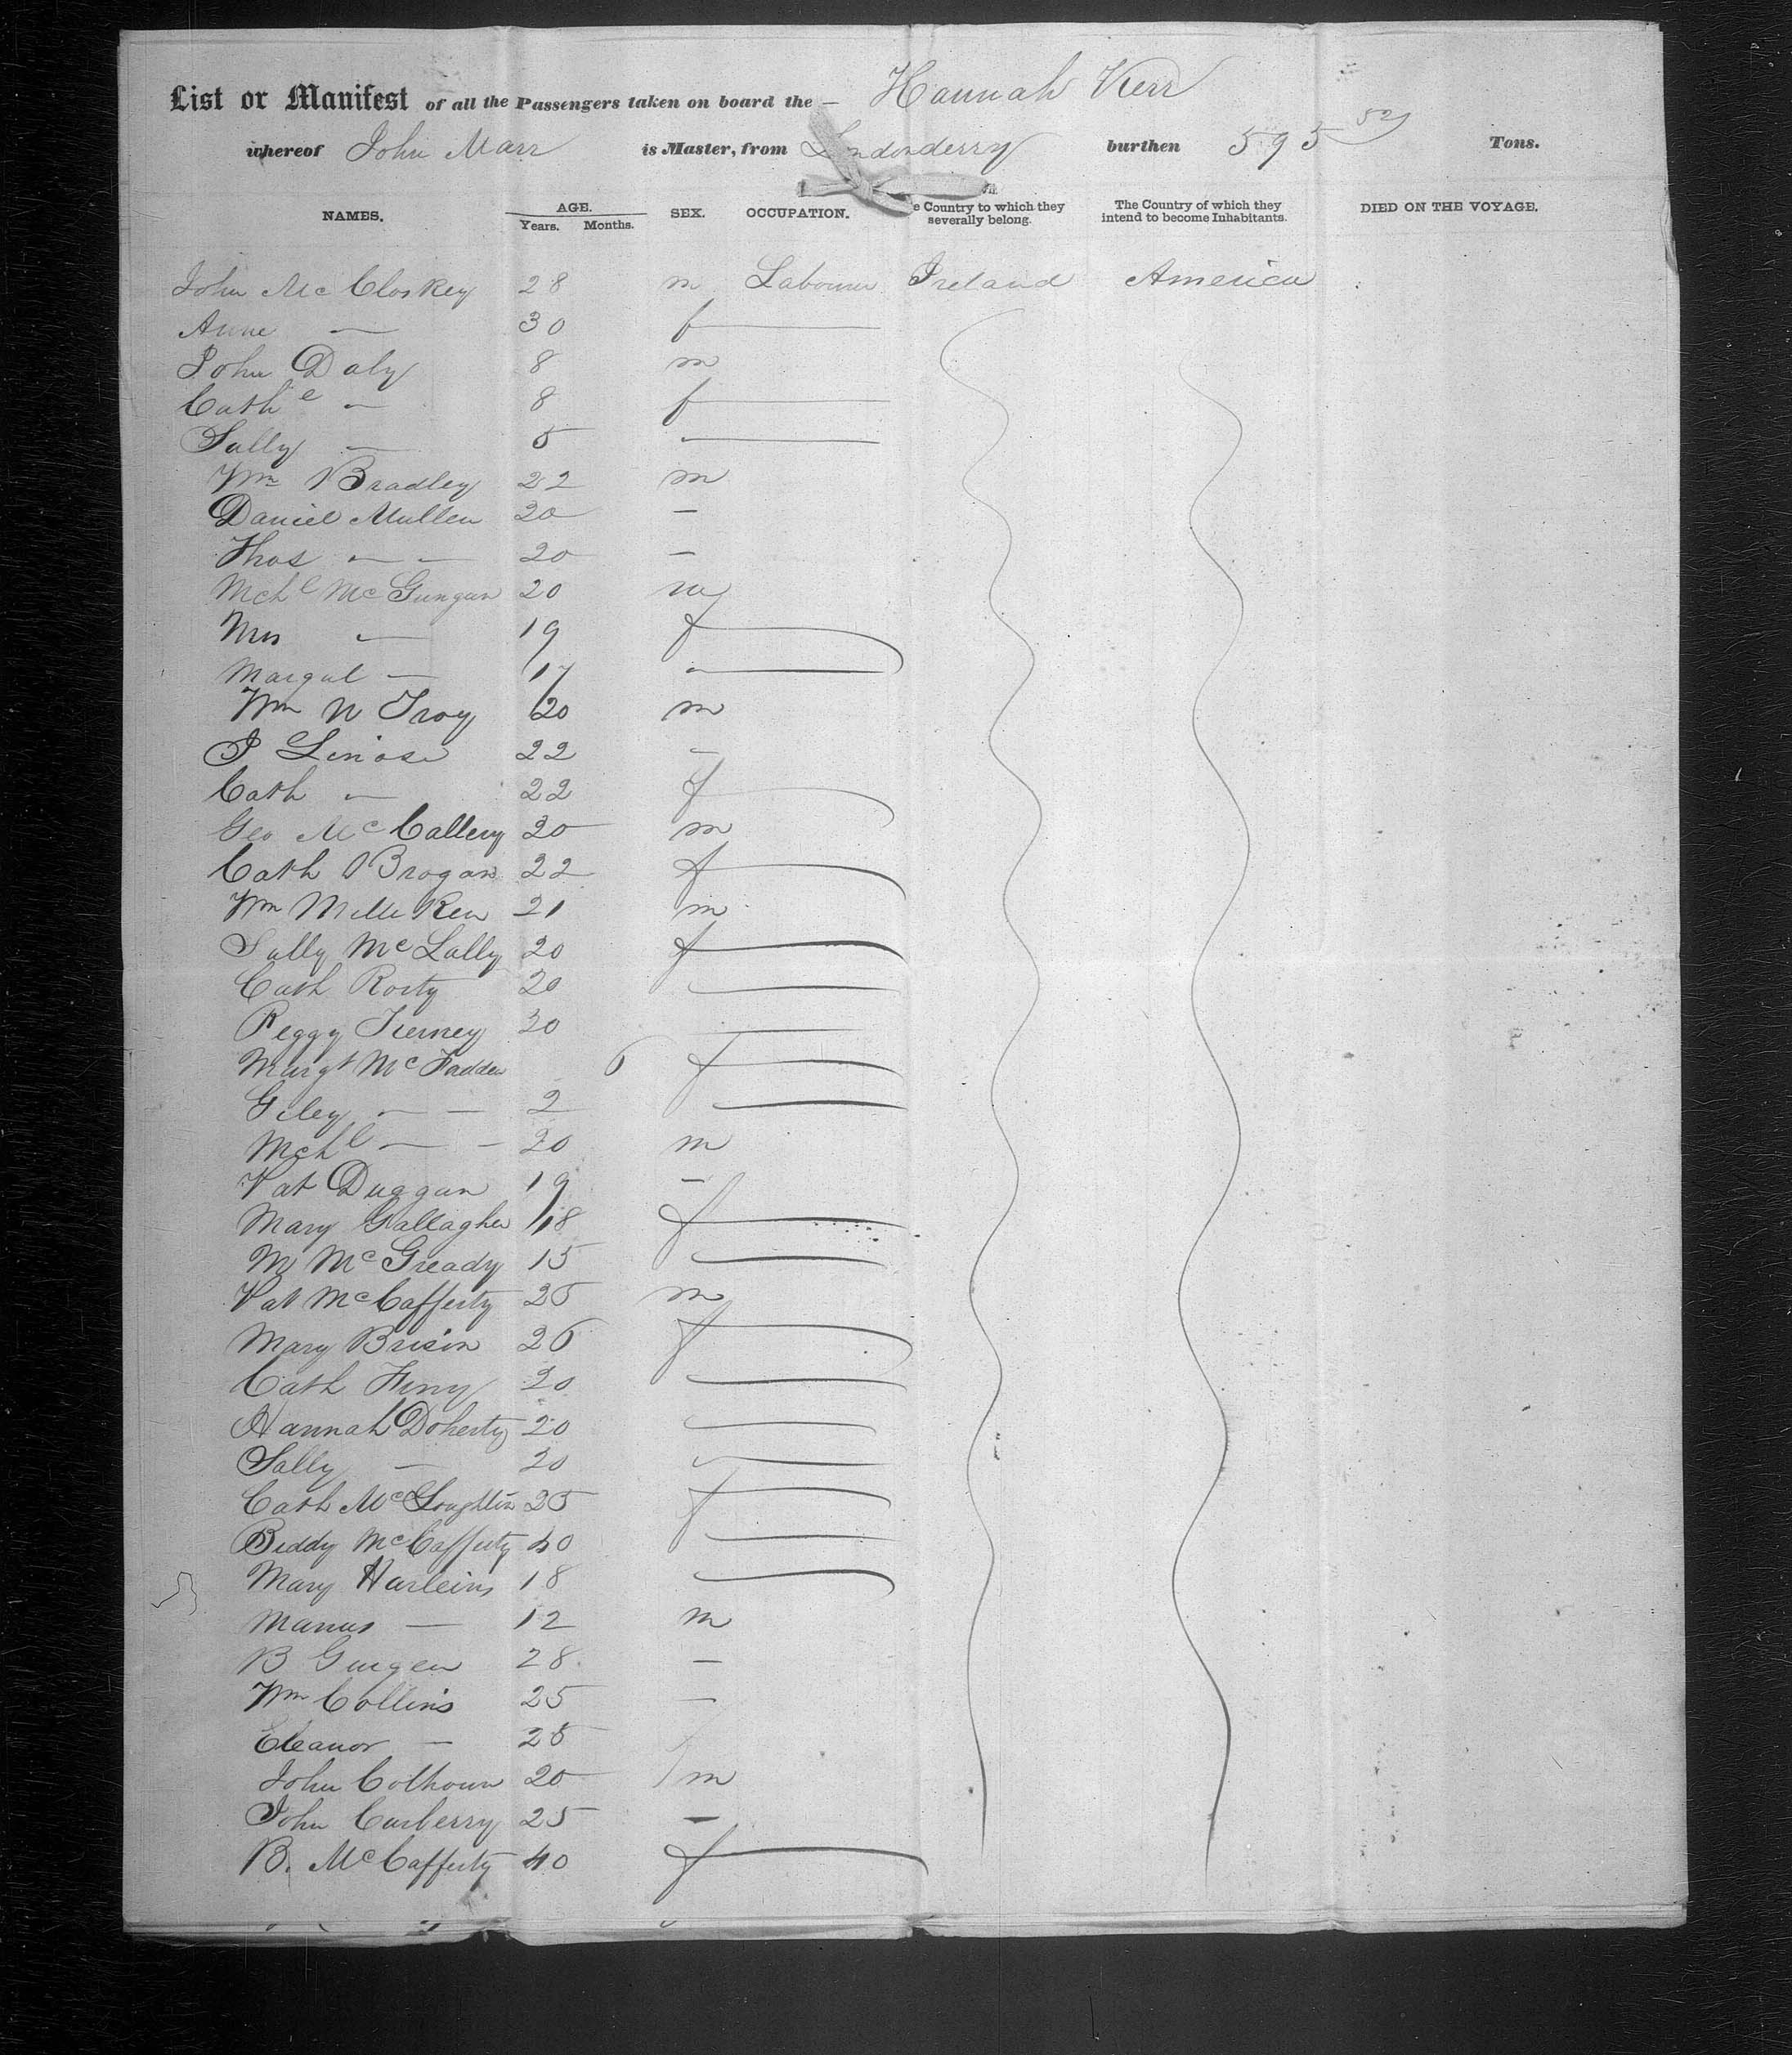 List or Manifest of all the Passengers taken on board the — Hannah Kerr
whereof John Marr is Master, from Londonderry burthen 595 52 Tons.
NAMES. AGE. Years. Months. SEX. OCCUPATION. e Country to which they severally belong. The Country of which they intend to become Inhabitants. DIED ON THE VOYAGE.
John McCloskey 28 m Labourer Ireland America
Anne — 30 f
John Daly 8 m
Cathe — 8 f
Sally — 5
Wm Bradley 22 m
Daniel Mullen 20 —
Thos — — 20 —
Mchl Mc Gungan 20 m
Mrs — 19 f
Margat — 17
Wm N Troy 20 m
J 22 —
Cath — 22 f
Geo McCallery 20 m
Cath Brogan 22 f
Wm Milliken 21 m
Sally McLally 20 f
Cath Rorty 20
Peggy Tierney 30
Margt McFadden 6 f
Giley — — 2
Mchl — — 20 m
Pat Duggan 19 —
Mary Gallagher 18 f
M McGready 15
Pat McCafferty 25 m
Mary Brisin 26 f
Cath Feny 20
Hannah Doherty 20
Sally — 20
Cath McGloughlin 25 f
Biddy McCafferty 40
Mary Harkins 18
Manus — 12 m
B 28 —
Wm Collins 25 —
Eleanor — 25
John Colhoun 20 m
John Carberry 25 —
B. McCafferty 40 f